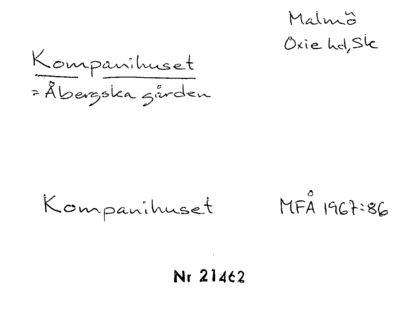 Malmö
Oxie hd, Sk
Kompanihuset
= Åbergska gården
Kompanihuset MFÅ 1967:86
Nr 21462